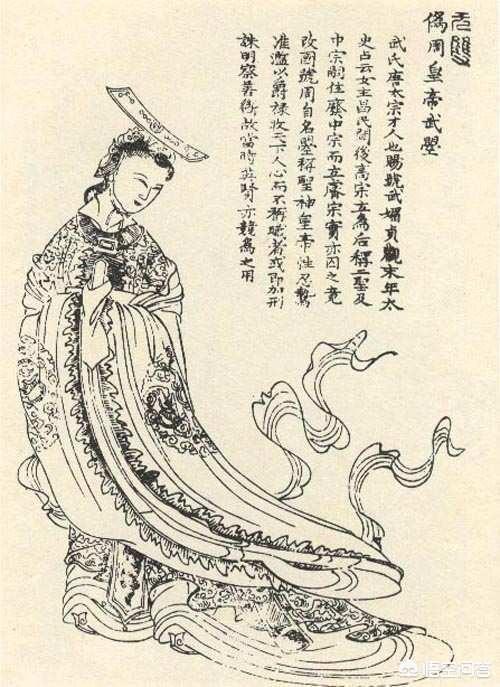 无雙
僞周皇帝武曌
武氏唐太宗才人也賜號武媚貞觀末年太
史占云女主昌民間後高宗立為后稱二聖及
中宗嗣位廢中宗而立睿宗實亦囚之竟
改國號周自名曌稱聖神皇帝性忍鷙
准濫以爵祿收天下人心而不稱職者或即加刑
誅明察善斷故當時英賢亦競為之用
悟空问答